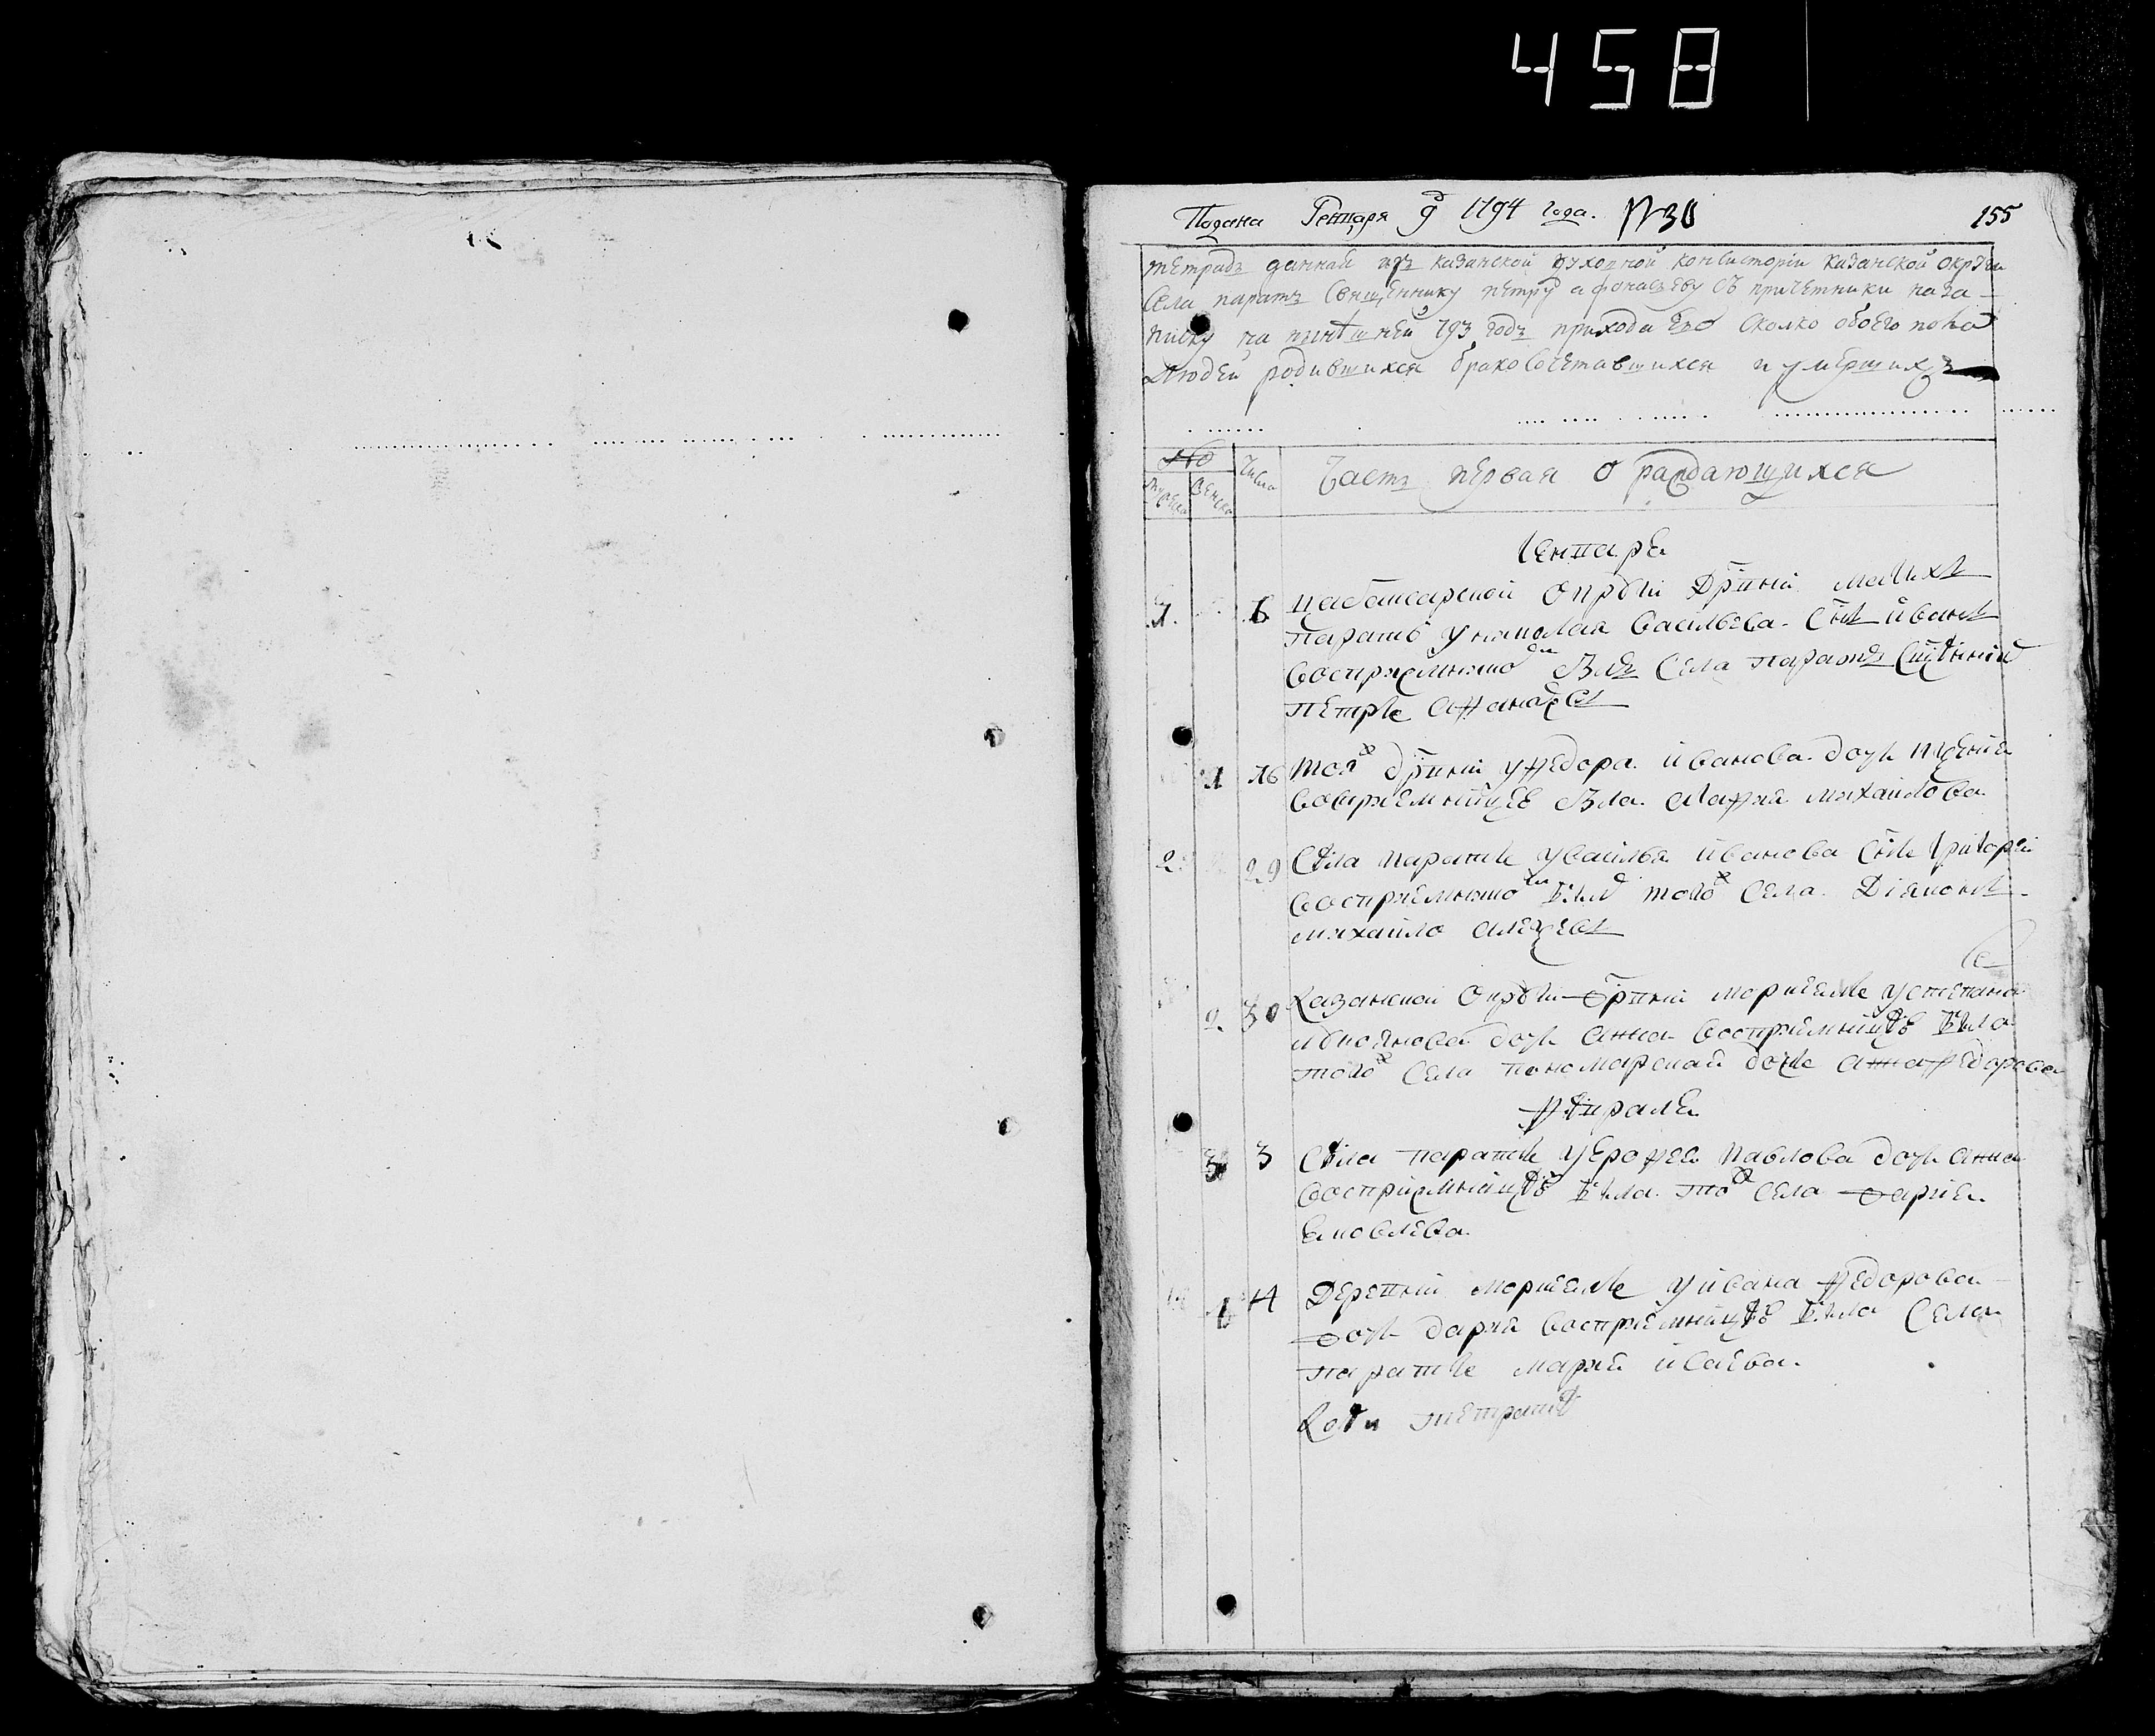 458
Подана Генваря 9 1794 года. №30 155
тетрадь данная изъ казанской духовной консисторіи казанской округи
села паратъ священнику петру афонасьеву съ причетники на за
писку на нынѣшней 793 годъ прихода его сколко обоего пола
людей родившихся бракосочетавшихся и умершихъ
Число
мужеска женска
Часть первая о раждающихся
Генваря
1. 6 чебоксарской округи дрвни малыхъ
паратъ у николая васильева сынъ иванъ
восприемникомъ былъ села паратъ сщенникъ
петръ афанасьевъ
1 16 тояж дрвни у федора иванова дочь
восприемницею была мария михайлова
2 29 села паратъ у василья иванова сынъ григорей
восприемникомъ былъ тогож села диаконъ
михайло алексеевъ
2 30 казанской округи дрвни моркеялъ у степана
дочь анна восприемницею была
тогож села пономарская дочь анна федорова
февраля
3 3 села паратъ у ерофея павлова дочь анна
восприемницею была тогож села дарья
яковлева
14 деревни моркеялъ у ивана федорова
дочь дарья восприемницею была села
паратъ марья исаева
Къ сей тетрати